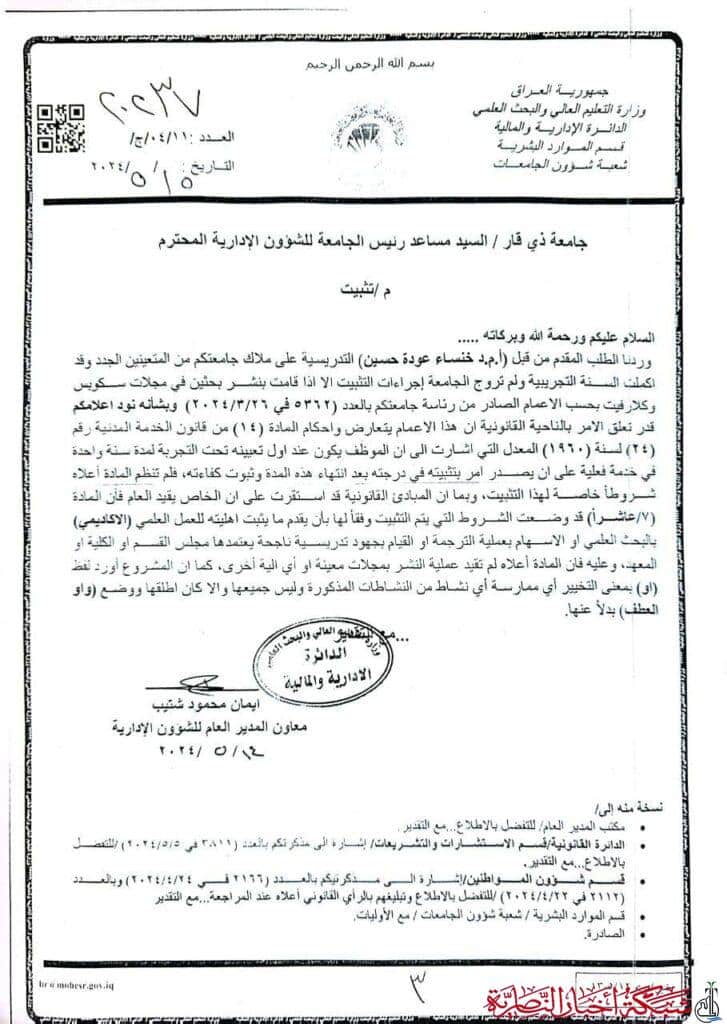 بسم الله الرحمن الرحيم
جمهورية العراق
وزارة التعليم العالي والبحث العلمي
الدائرة الإدارية والمالية
قسم الموارد البشرية
شعبة شؤون الجامعات
٢٠٢٣٧
العدد :٠٤/١١/ج/
التاريخ: ٥/ ٥ /٢٠٢٤
جامعة ذي قار / السيد مساعد رئيس الجامعة للشؤون الإدارية المحترم
م /تثبيت
السلام عليكم ورحمة الله وبركاته .....
وردنا الطلب المقدم من قبل (أ.م.د خنساء عودة حسين) التدريسية على ملاك جامعتكم من المتعينين الجدد وقد
اكملت السنة التجريبية ولم تروج الجامعة إجراءات التثبيت الا اذا قامت بنشر بحثين في مجلات سكوبس
وكلارفيت بحسب الاعمام الصادر من رئاسة جامعتكم بالعدد (٥٣٦٢ في ٢٠٢٤/٣/٢٦) وبشأنه نود اعلامكم
قدر تعلق الامر بالناحية القانونية ان هذا الاعمام يتعارض واحكام المادة (١٤) من قانون الخدمة المدنية رقم
(٢٤) لسنة (١٩٦٠) المعدل التي اشارت الى ان الموظف يكون عند اول تعيينه تحت التجربة لمدة سنة واحدة
في خدمة فعلية على ان يصدر امر بتثبيته في درجته بعد انتهاء هذه المدة وثبوت كفاءته، فلم تنظم المادة أعلاه
شروطاً خاصة لهذا التثبيت، وبما ان المبادئ القانونية قد استقرت على ان الخاص يقيد العام فأن المادة
(٧/عاشراً) قد وضعت الشروط التي يتم التثبيت وفقاً لها بأن يقدم ما يثبت اهليته للعمل العلمي (الاكاديمي)
بالبحث العلمي او الاسهام بعملية الترجمة او القيام بجهود تدريسية ناجحة يعتمدها مجلس القسم او الكلية او
المعهد، وعليه فان المادة أعلاه لم تقيد عملية النشر بمجلات معينة او أي الية أخرى، كما ان المشروع أورد لفظ
(او) بمعنى التخيير أي ممارسة أي نشاط من النشاطات المذكورة وليس جميعها والا كان اطلقها ووضع (واو
العطف) بدلاً عنها.
...مع التقدير
وزارة التعليم العالي والبحث العلمي
الدائرة
الادارية والمالية
ايمان محمود شتيب
معاون المدير العام للشؤون الإدارية
١٤ / ٥ /٢٠٢٤
نسخة منه إلى/
• مكتب المدير العام/ للتفضل بالاطلاع...مع التقدير.
• الدائرة القانونية/قسم الاستشارات والتشريعات/ إشارة الى مذكرتكم بالعدد (٣٨١١ في ٢٠٢٤/٥/٥) /للتفضل
بالاطلاع...مع التقدير.
• قسم شؤون المواطنين/إشارة الى مذكرتيكم بالعدد (٢١٦٦ في ٢٠٢٤/٤/٢٤) وبالعدد
(٢١١٢ في ٢٠٢٤/٤/٢٢) /للتفضل بالاطلاع وتبليغهم بالرأي القانوني أعلاه عند المراجعة...مع التقدير
• قسم الموارد البشرية / شعبة شؤون الجامعات / مع الأوليات.
• الصادرة.
٣
شبكة أخبار الناصرية